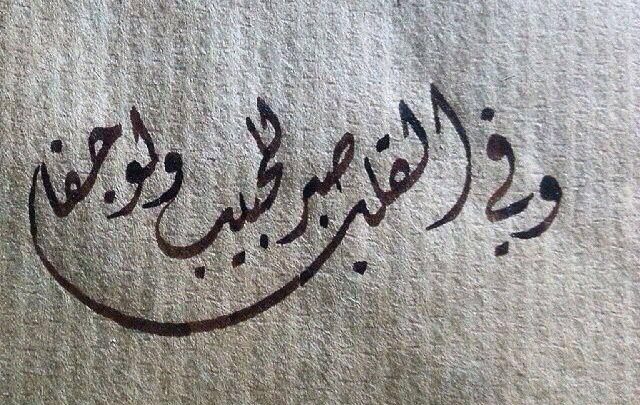 وفي القلب صبر للحبيب ولو جفا